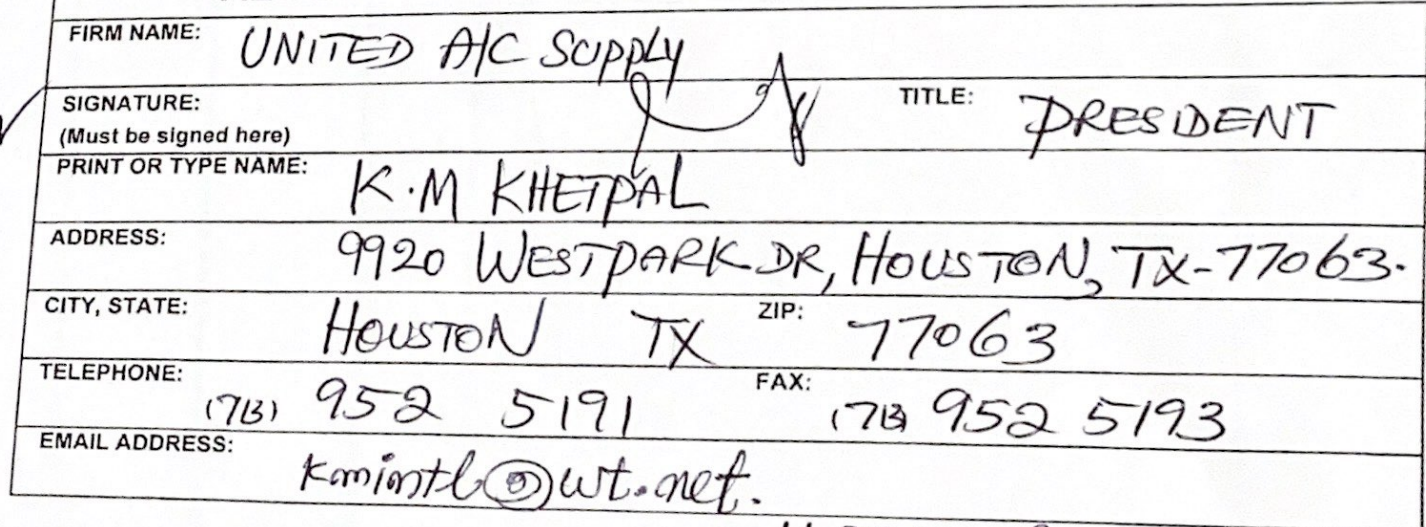 FIRM NAME: UNITED A/C SUPPLY
SIGNATURE: TITLE: PRESIDENT
(Must be signed here)
PRINT OR TYPE NAME: K.M KHETPAL
ADDRESS: 9920 WESTPARK DR, HOUSTON, TX-77063.
CITY, STATE: HOUSTON TX ZIP: 77063
TELEPHONE: (713) 952 5191 FAX: (713) 952 5193
EMAIL ADDRESS: kmintl@wt.net.